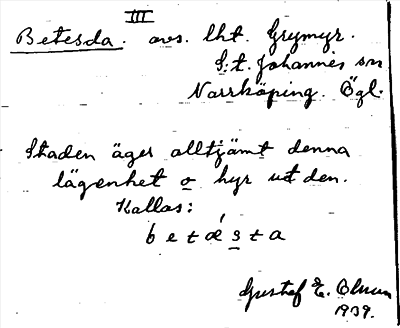 III
Betesda. avs. lht. Grymyr.
S:t. Johannes sn
Norrköping. Ögl.
Staden äger alltjämt denna
lägenhet o hyr ut den.
Kallas:
betǽsta
Gustaf E.
1939.